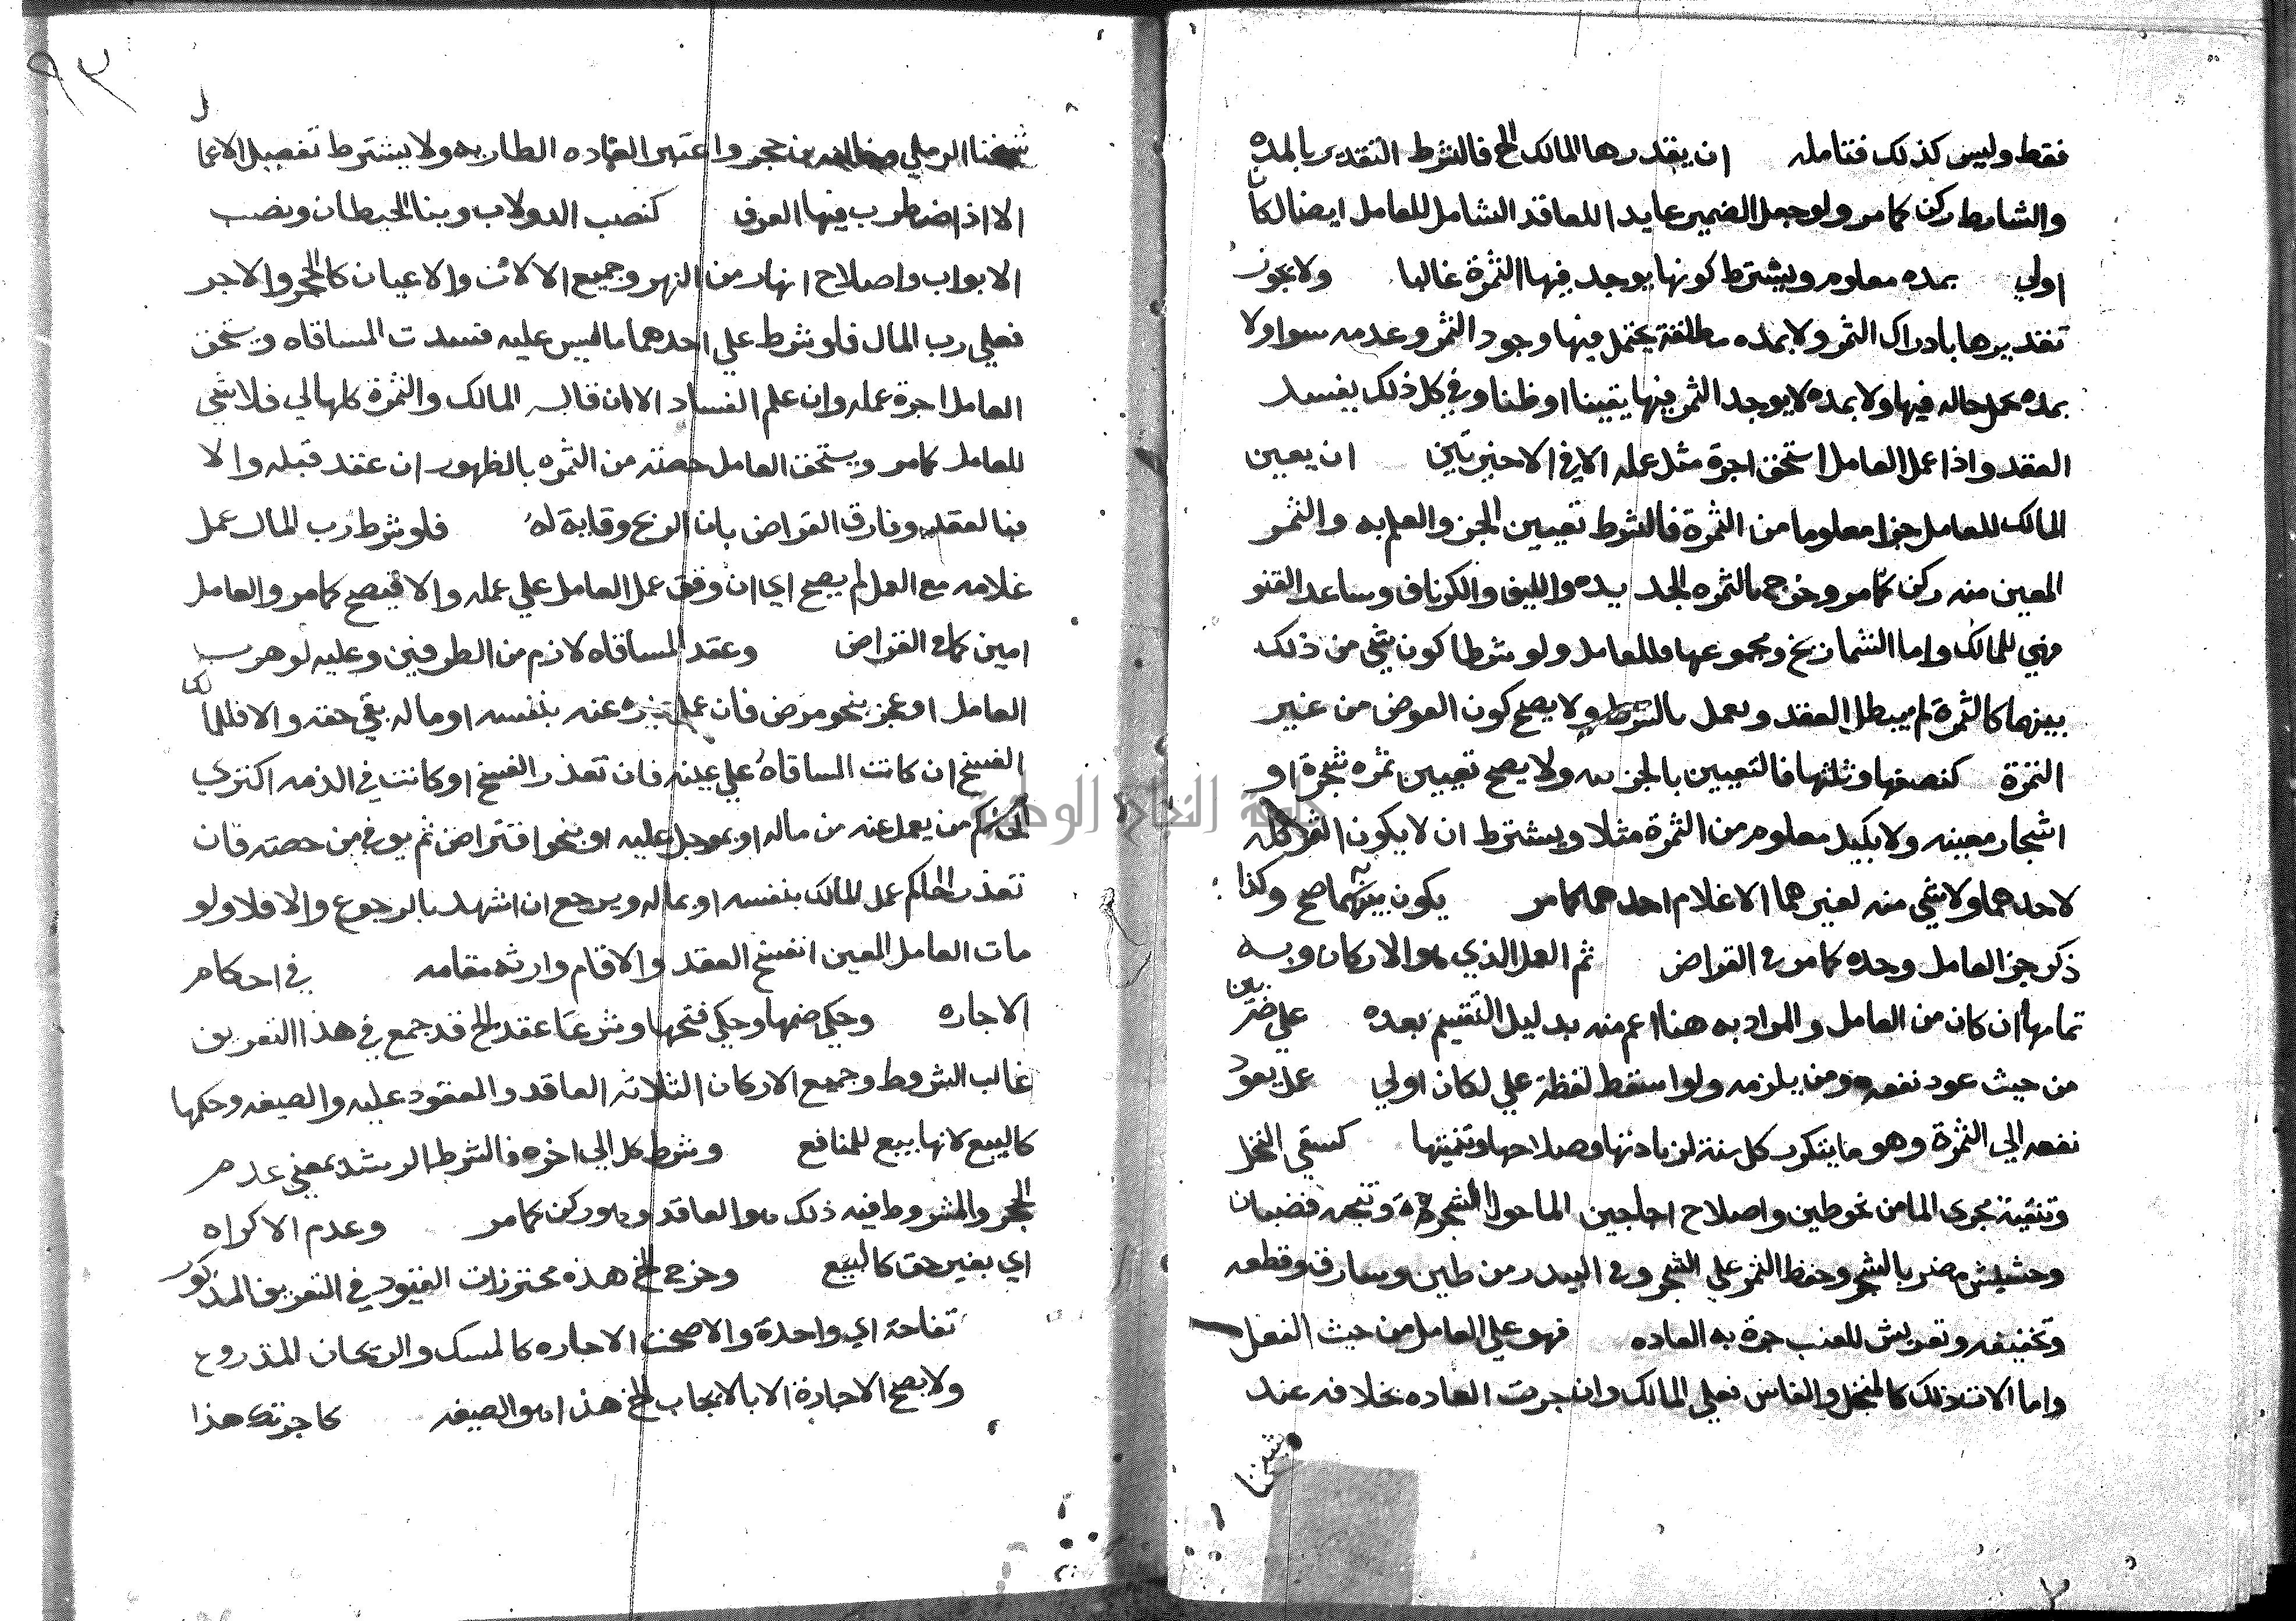 فقط وليس كذلك فتامله ان يقدرها المالك الخ فالشرط التقدير بالمده
والشارط ركن كما مر ولو جعل الضمير عايدا للعاقد الشامل للعامل ايضا لكان
اولي بمده معلوم ويشترط كونها يوجد فيها الثمرة غالبا ولا يجوز
تقديرها بادراك الثمر ولا بمده مطلقة يحتمل فيها وجود الثمر وعدمه سوا ولا
بمده حاله فيها ولا بمده لا يوجد الثمر فيها يقينا او ظنا وفي كل ذلك يفسد
العقد واذا عمل العامل استحق اجرة مثل عمله الا في الاخيرتين ان يعين
المالك للعامل جزا معلوما من الثمرة فالشرط تعيين الجز والعلم به والثمر
المعين منه ركن كما مر وخرج بالثمره الجديده والليف والكرناف وساعد القنو
فهي للمالك واما الشماريخ ومجموعها فللعامل ولو شرطا كون شي من ذلك
بينهما كالثمرة لم يبطل العقد ويعمل بالشرط ولا يصح كون العوض من غير
الثمرة كنصفها وثلثها فالتعيين بالجزيه ولا يصح تعيين ثمره شجرة او
اشجار معينه ولا بكيل معلوم من الثمرة مثلا ويشترط ان لا يكون الثمر كله
لاحدهما ولا شي منه لغيرهما الا غلام احدهما كما مر يكون بينهما صح وكذا
ذكر جز العامل وحده كما مر في القراض ثم العمل الذي هو الاركان وبه
تمامها ان كان من العامل والمراد به هنا اعم منه بدليل التقسيم بعده علي ضربين
من حيث عود نفعه ومن يلزمه ولو اسقط لفظة علي لكان اولي عمل يعود
نفعه الي الثمرة وهو ما يتكرر كل سنة لزيادتها وصلاحها وتنميتها كسقي النخل
وتنقية مجرى الما من نحو طين واصلاح احاجين الما حول الشجر وتنحيه قضبان
وحشيش مضر بالشجر وحفظ الثمر علي الشجر وفي البيدر من طين وسارق وقطعه
وتجفيفه وتعريش للعنب جرة به العاده فهو علي العامل من حيث الفعل
واما الات ذلك كالمنجل والفاس فعلي المالك وان جرت العاده بخلافه عند
شيخنا
٩٣
شيخنا الرملي ابن حجر واعتبر العاده الطاريه ولا يشترط تفصيل الاعمال
الا اذا اضطرب فيها العرف كنصب الدولاب وبنا الحيطان ونصب
الابواب واصلاح انهار من النهر وجميع الالات والاعيان كالحجر والاجر
فعلي رب المال فلو شرط علي احدهما ما ليس عليه فسدت المساقاه ويستحق
العامل اجرة عمله وان علم الفساد الا ان قال المالك والثمرة كلها لي فلا شي
للعامل كما مر ويستحق العامل حصته من الثمره بالظهور ان عقد قبله والا
فبالعقد وفارق القراض بان الربح وقاية له فلو شرط رب المال عمل
غلامه مع العمل لم يصح اي ان وقف عمل العامل علي عمله والا فيصح كما مر والعامل
امين كما في القراض وعقد المساقاه لازم من الطرفين وعليه لو هرب
العامل او عجز بنحو مرض فان عمل غيره عنه بنفسه او ماله بقي حقه والا فللمالك
الفسخ ان كانت المساقاه علي عينه فان تعذر الفسخ او كانت في الذمه اكترى
الحاكم من يعمل عنه من ماله او بموجل عليه او بنحو اقتراض ثم يوفي من حصته فان
تعذر الحاكم عمل المالك بنفسه او بماله ويرجع ان اشهد بالرجوع والا فلا ولو
مات العامل المعين انفسخ العقد والا قام وارثه مقامه في احكام
الاجاره وحكي ضمها وحكي فتحها وشرعا عقد الخ قد جمع في هذا التعريف
غالب الشروط وجميع الاركان الثلاثه العاقد والمعقود عليه والصيغه وحكمها
كالبيع لانها بيع للمنافع وشرط كل الي اخره فالشرط الرشد بمعني عدم
الحجر والمشروط فيه ذلك هو العاقد وهو ركن كما مر وعدم الاكراه
اي بغير حق كالبيع وخرج الخ هذه محترزات القيود في التعريف المذكور
تفاحة اي واحدة والا صحت الاجاره كالمسك والريحان المزروع
ولا يصح الاجارة الا بالايجاب الخ هذا هو الصيغه كاجرتك هذا